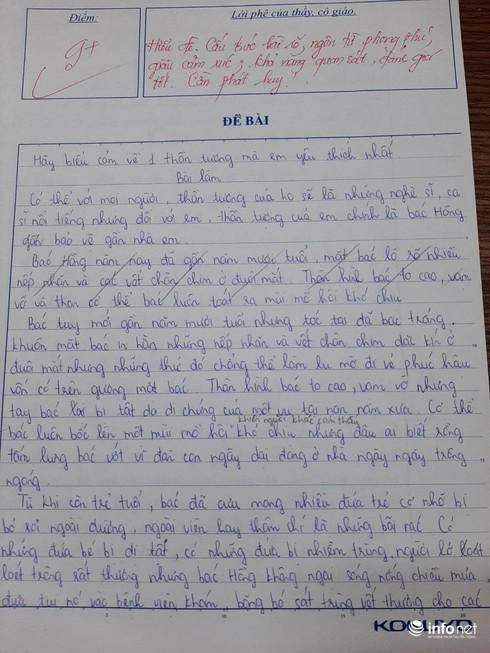 Điểm:
Lời phê của thầy, cô giáo.
9+
Hiểu đề. Cấu trúc bài rõ, ngôn từ phong phú,
giàu cảm xúc, khả năng quan sát, đánh giá
tốt. Cần phát huy!
ĐỀ BÀI
Hãy biểu cảm về 1 thần tượng mà em yêu thích nhất
Bài làm
Có thể với mọi người, thần tượng của họ sẽ là những nghệ sĩ, ca
sĩ nổi tiếng nhưng đối với em, thần tượng của em chính là bác Hồng
gần bảo vệ gần nhà em.
Bác Hồng năm nay đã gần năm mươi tuổi, mặt bác lộ rõ nhiều
nếp nhăn và các vết chân chim ở đuôi mắt. Thân hình bác to cao, vạm
vỡ và thân cơ thể bác luôn toát ra mùi mồ hôi khó chịu
Bác tuy mới gần năm mươi tuổi nhưng tóc tai đã bạc trắng,
khuôn mặt bác in hằn những nếp nhăn và vết chân chim dày kín ở
đuôi mắt nhưng những thứ đó chẳng thể làm lu mờ đi vẻ phúc hậu
vốn có trên gương mặt bác. Thân hình bác to cao, vạm vỡ nhưng
tay bác lại bị tật do di chứng của một vụ tai nạn năm xưa. Cơ thể
bác luôn bốc lên một mùi mồ hôi khiến người khác cảm thấy khó chịu nhưng đâu ai biết rằng
tấm lưng bác ướt vì đàn con ngây dại đang ở nhà ngày ngày trông
ngóng.
Từ khi còn trẻ tuổi, bác đã cưu mang nhiều đứa trẻ cơ nhỡ bị
bỏ rơi ngoài đường, ngoài viện hay thậm chí là những bãi rác. Có
những đứa bé bị dị tật, có những đứa bị nhiễm trùng, người lở loét
loét trông rất thương nhưng bác Hồng không ngại sáng, nắng chiều mưa
đưa tụi nó vào bệnh viện khám, băng bó sát trùng vết thương cho các
KOKUYO
infonet